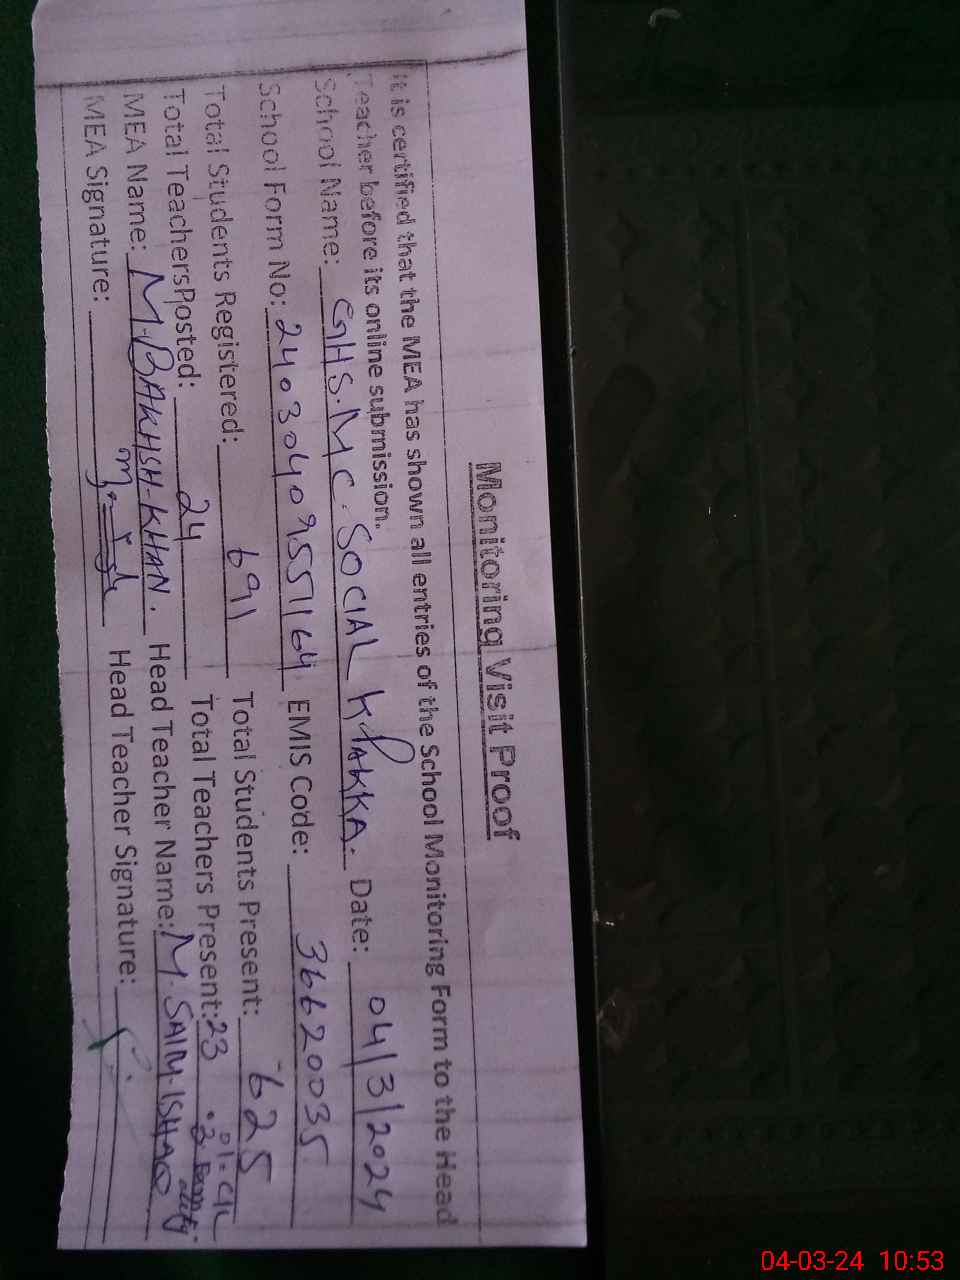 Monitoring Visit Proof
It is certified that the MEA has shown all entries of the School Monitoring Form to the Head
Teacher before its online submission.
School Name: GHS.MC.SOCIAL KHAKKA. Date: 04/3/2024
School Form No: 2403040955164 EMIS Code: 36620035
Total Students Registered: 691 Total Students Present: 625
Total TeachersPosted: 24 Total Teachers Present: 23 01.CL
.2 Exam duty
MEA Name: M.BAKHSH-KHAN. Head Teacher Name: M.SAIM.ISHAQ
MEA Signature: Head Teacher Signature:
04-03-24 10:53